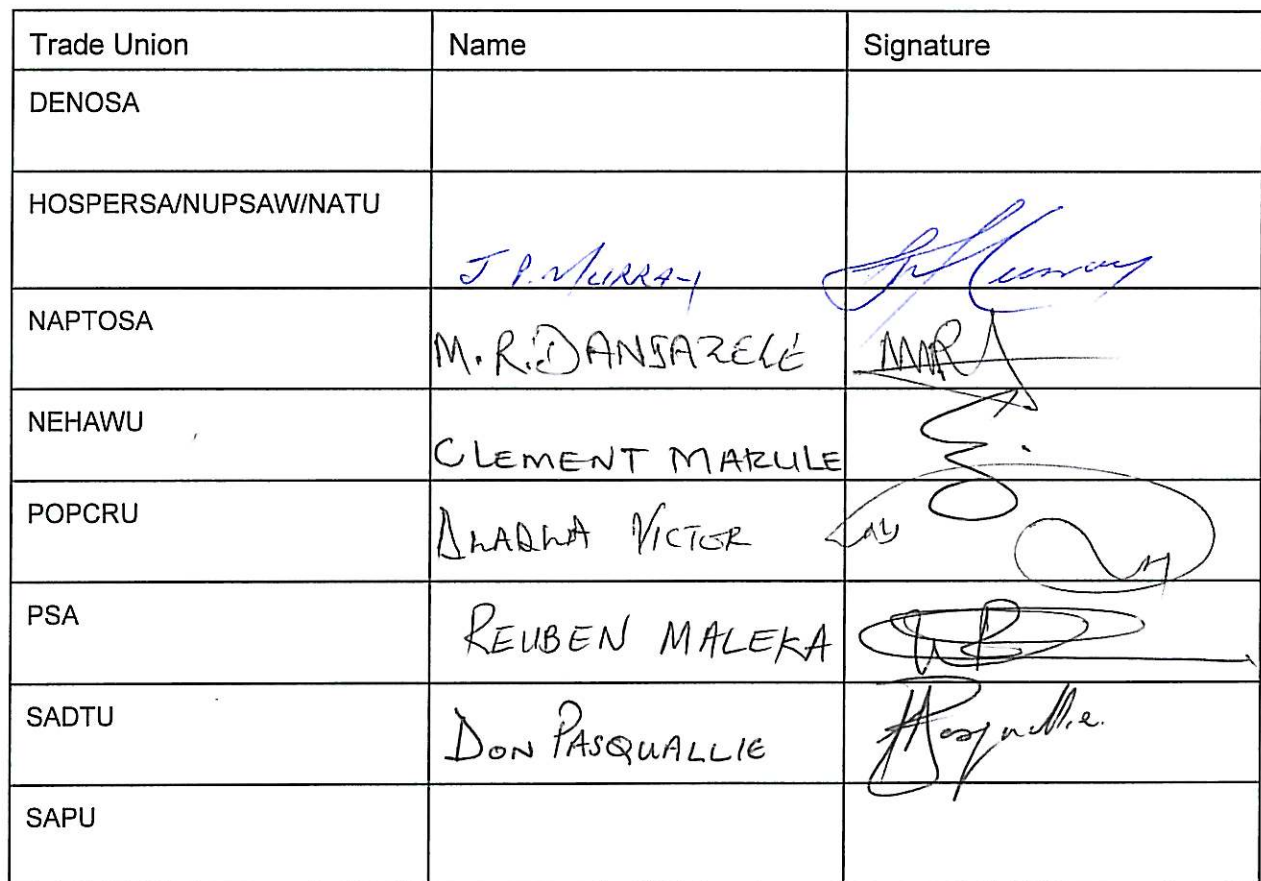 Trade Union Name Signature
DENOSA
HOSPERSA/NUPSAW/NATU
J P. MURRAY
NAPTOSA
M.R.
NEHAWU
CLEMENT MARULE
POPCRU
VICTOR
PSA
REUBEN MALEKA
SADTU
DON PASQUALLIE Pasquallie
SAPU